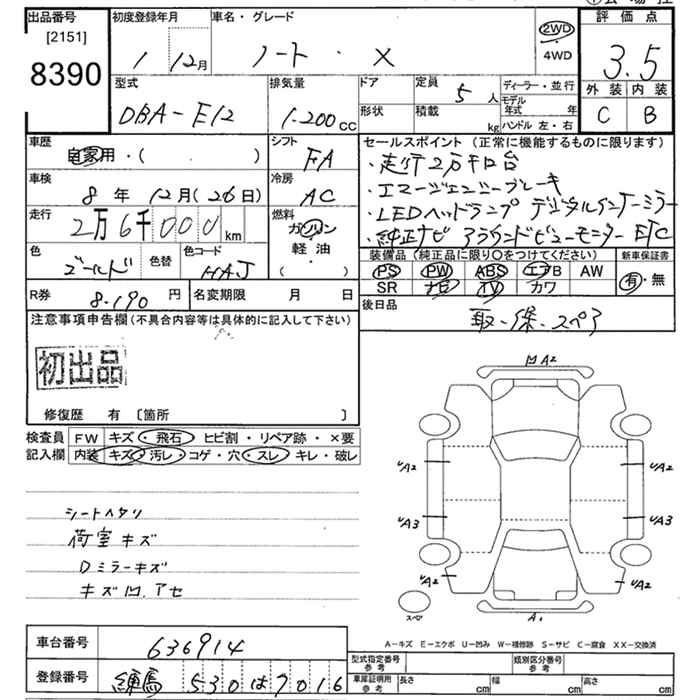 出品番号 初度登録年月 車名・グレード 評価点
[2151]
8390
1 12月 ノート・X 2WD 3.5
4WD
外装 内装
C B
型式 排気量 ドア 定員 5人 ディーラー・並行
DBA-E12 1.200cc 形状 積載 kg モデル年式 年
ハンドル 左・右
車歴 シフト セールスポイント(正常に機能するものに限ります)
自家用・( ) FA ・走行2万キロ台
車検 冷房 ・エマージェンシーブレーキ
8年12月(26日) AC ・LEDヘッドランプ デジタルインナーミラー
走行 燃料 ・純正ナビ アラウンドビューモニター ETC
2万6千000km ガソリン
軽・油
( )
色 色替 色コード 装備品(純正品に限り○をつけてください) 新車保証書
ゴールド HAJ PS PW ABS エアB AW 有・無
SR ナビ TV カワ
R券 8.190円 名変期限 月 日 後日品
取・保・スペア
注意事項申告欄(不具合内容等は具体的に記入して下さい)
初出品
修復歴 有〔箇所 〕
検査員 FW キズ・飛石・ヒビ割・リペア跡・×要
記入欄 内装 キズ・汚レ・コゲ・穴・スレ・キレ・破レ
シートヘタリ
荷室キズ
Dミラーキズ
キズ凹.アセ
凹A2
UA2 UA2
A3 UA3
UA2 UA2
スペア A1
A-キズ E-エクボ U-凹み W-補修跡 S-サビ C-腐食 XX-交換済
車台番号 636914 型式指定番号 参考 類別区分番号 参考
登録番号 練馬 530は7016 車庫証明用 参考 長さ cm 幅 cm 高さ cm